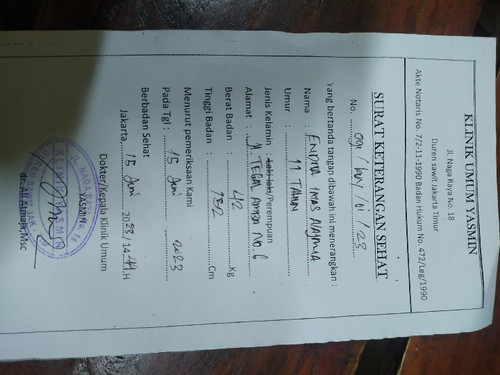 KLINIK UMUM YASMIN
Jl. Naga Raya No. 18
Duren sawit Jakarta Timur
Akte Notaris No. 7/2-11-1990 Badan Hukum No. 472/Leg/1990
SURAT KETERANGAN SEHAT
No. / / VI / 23
Yang bertanda tangan dibawah ini menerangkan :
Nama : ENDITA
Umur : 11 TAHUN
Jenis Kelamin : Laki-laki/Perempuan
Alamat : Jl. TEGAL No. 6
Berat Badan : 42 Kg
Tinggi Badan : 152 Cm
Menurut pemeriksaan Kami
Pada Tgl : 15 Juni 2023
Berbadan Sehat
Jakarta, 15 Juni 2023/14 H
Dokter/Kepala Klinik Umum
YASMIN